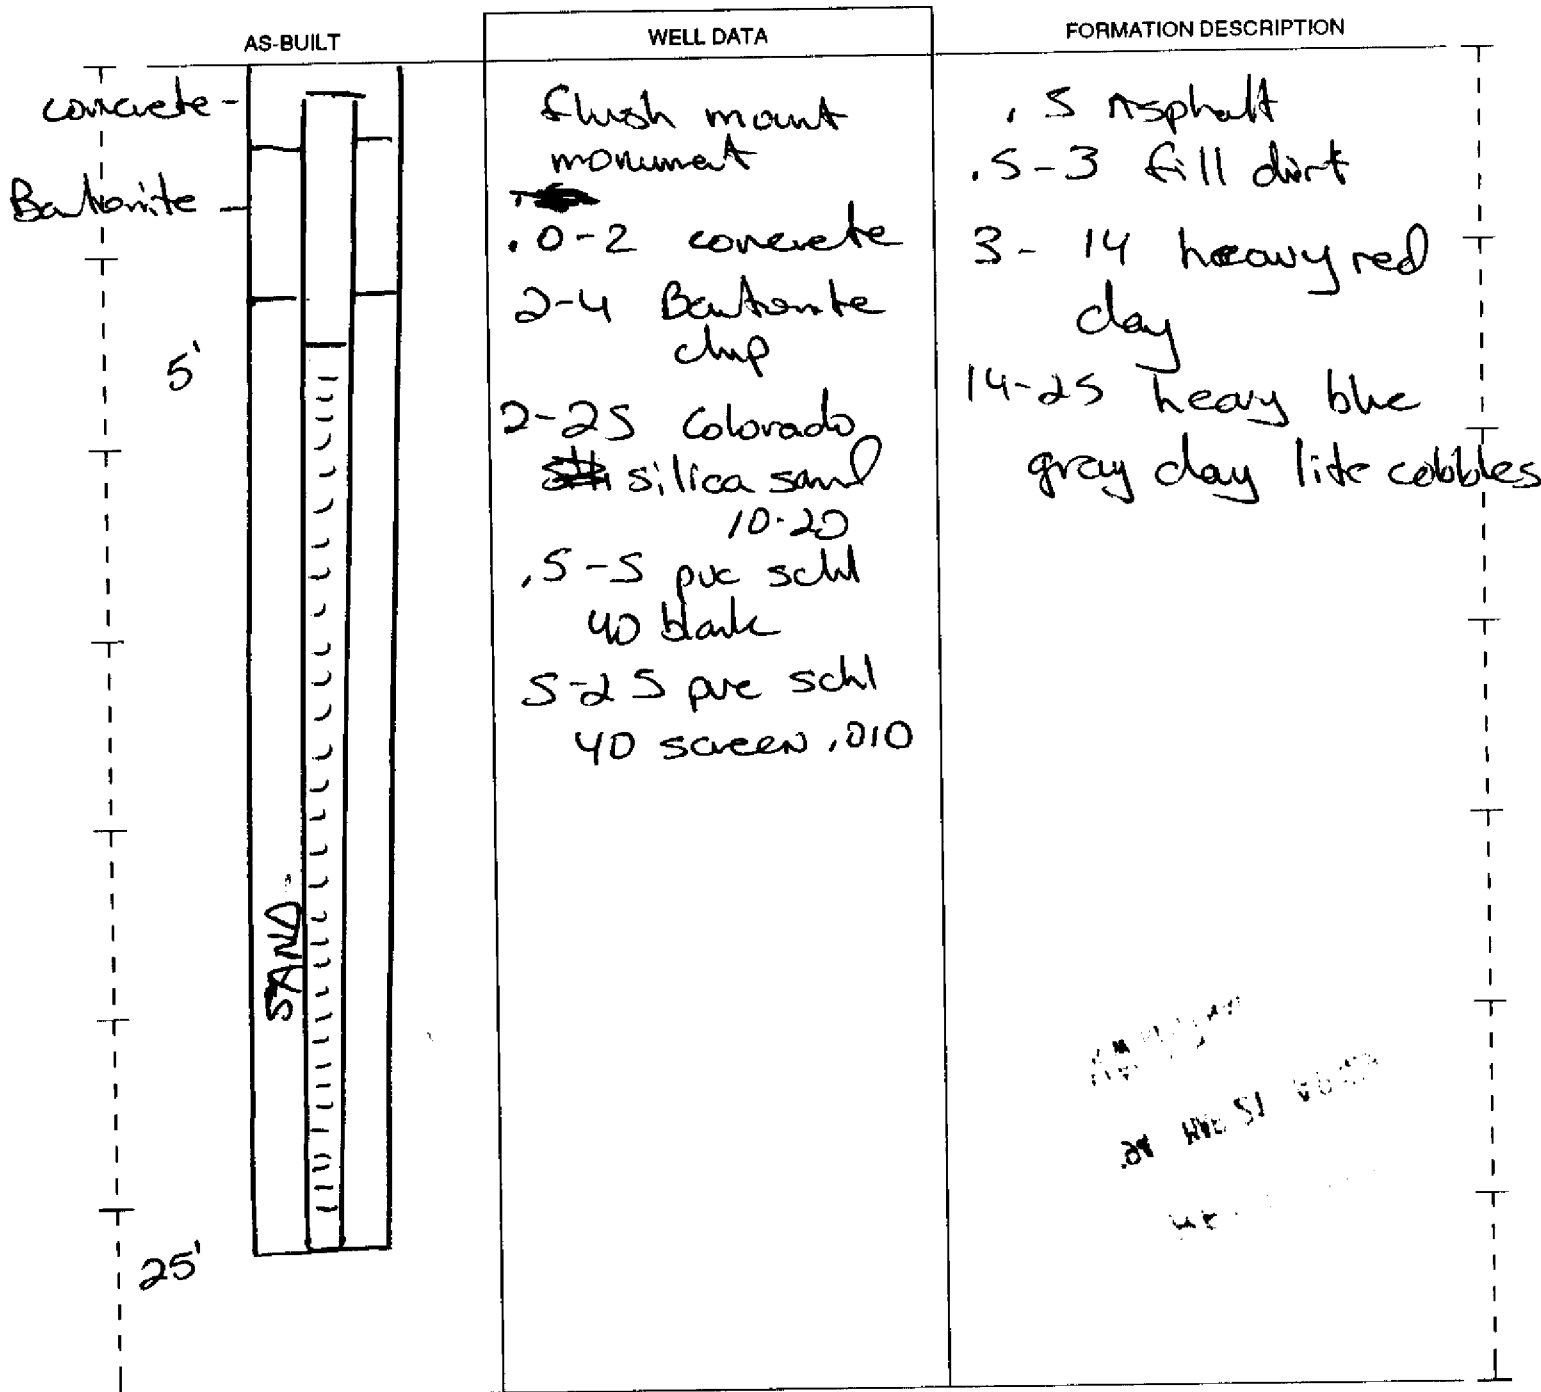 AS-BUILT
concrete -
Bentonite -
5'
SAND -
25'
WELL DATA
flush mount
monument
.0-2 concrete
2-4 Bentonite
chip
2-25 Colorado
silica sand
10-20
.5-5 pvc schl
40 blank
5-25 pvc schl
40 screen .010
FORMATION DESCRIPTION
.5 Asphalt
.5-3 fill dirt
3- 14 heavy red
clay
14-25 heavy blue
gray clay lite cobbles